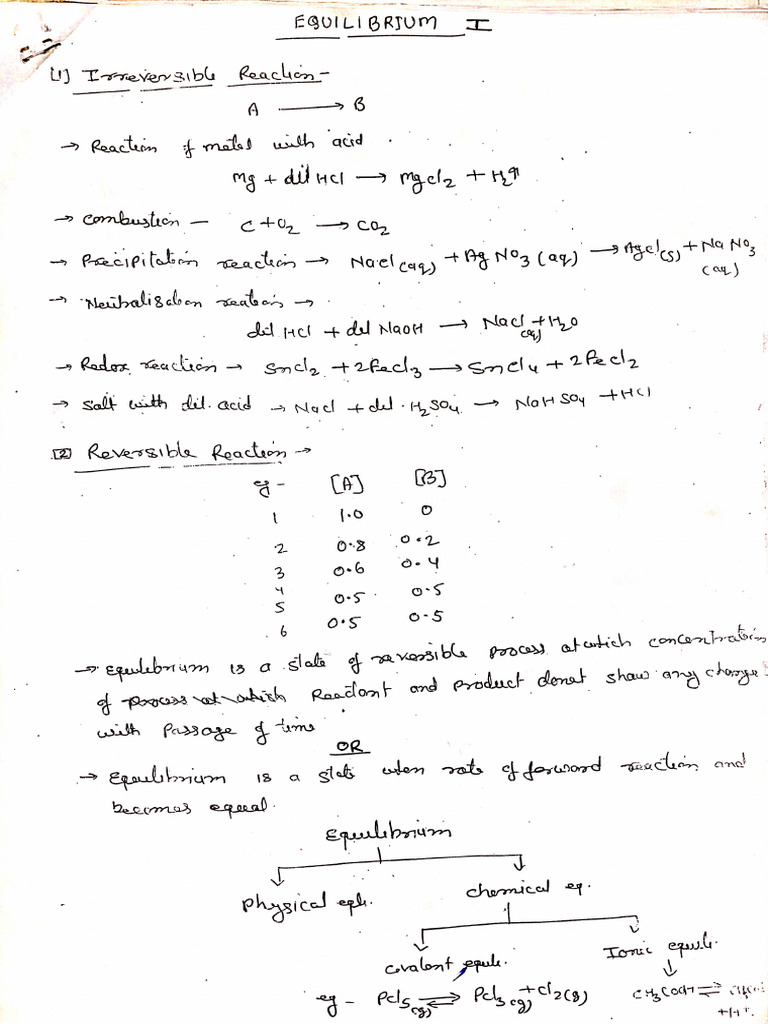 EQUILIBRIUM I
[1] Irreversible Reaction -
A ⟶ B
→ Reaction of metal with acid
Mg + dil HCl ⟶ MgCl2 + H2↑
→ Combustion - C + O2 ⟶ CO2
→ Precipitation reaction → NaCl(aq) + AgNO3(aq) ⟶ AgCl(s) + NaNO3(aq)
→ Neutralisation reation →
dil HCl + dil NaOH ⟶ NaCl(aq) + H2O
→ Redox reaction → SnCl2 + 2FeCl3 ⟶ SnCl4 + 2FeCl2
→ Salt with dil. acid → NaCl + dil. H2SO4 ⟶ NaHSO4 + HCl
[2] Reversible Reaction →
eg - [A] [B]
1 1.0 0
2 0.8 0.2
3 0.6 0.4
4
5 0.5 0.5
6 0.5 0.5
→ Equilibrium is a state of reversible process at which concentration
of process at which Reactant and product donot show any change
with Passage of time
OR
→ Equilibrium is a state when rate of forward reaction and
becomes equal.
Equilibrium
Physical eqli. chemical eq.
covalent equli. Ionic equli.
eg - PCl5(g) ⇌ PCl3(g) + Cl2(g) CH3COOH ⇌
+H+